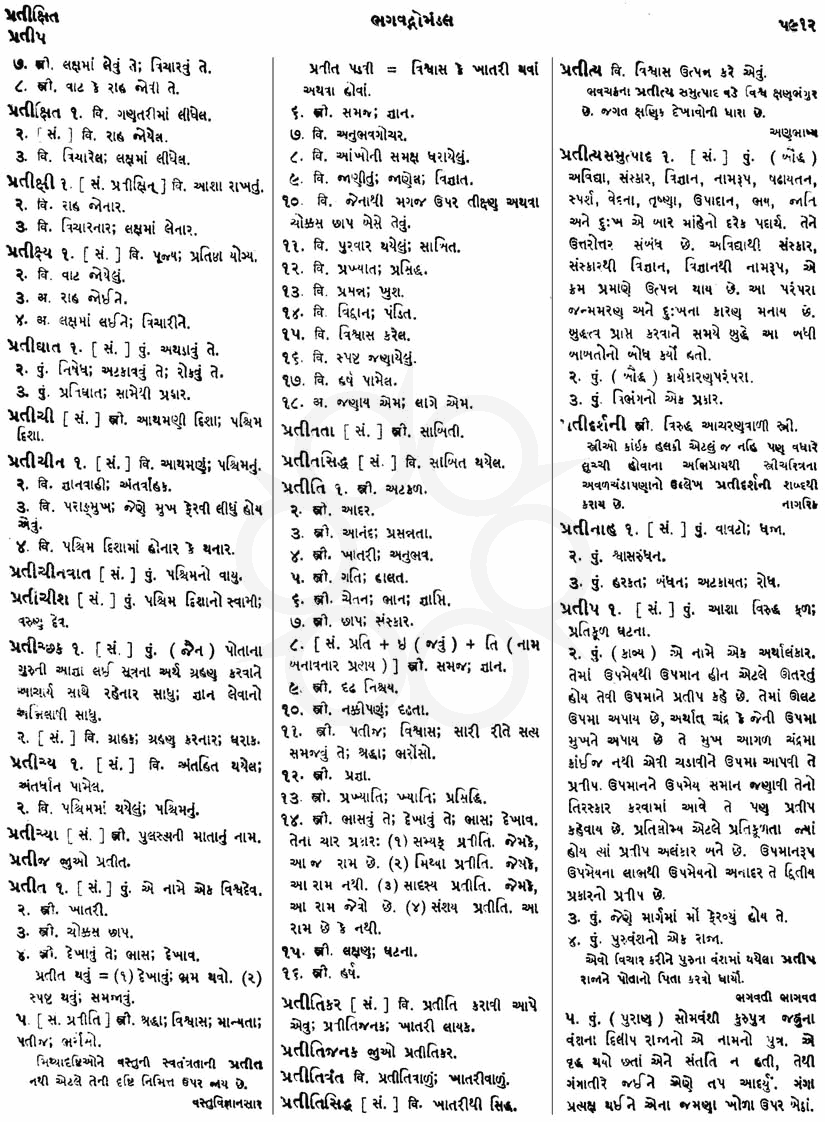 પ્રતીક્ષિત
પ્રતીપ
ભગવદ્ગોમંડલ
૫૯૧૨
૭. સ્ત્રી. લક્ષમાં લેવું તે; વિચારવું તે.
૮. સ્ત્રી. વાટ કે રાહ જોવી તે.
પ્રતીક્ષિત ૧. વિ. ગણતરીમાં લીધેલ.
૨. [ સં. ] વિ. રાહ જોયેલ.
૩. વિ. વિચારેલ; લક્ષમાં લીધેલ.
પ્રતીક્ષી ૧. [ સં. પ્રતીક્ષિન્ ] વિ. આશા રાખતું.
૨. વિ. રાહ જોનાર.
૩. વિ. વિચારનાર; લક્ષમાં લેનાર.
પ્રતીક્ષ્ય ૧. [ સં. ] વિ. પૂજ્ય; પ્રતિષ્ઠા યોગ્ય.
૨. વિ. વાટ જોયેલું.
૩. અ. રાહ જોઈને.
૪. અ. લક્ષમાં લઈને; વિચારીને.
પ્રતીઘાત ૧. [ સં. ] પું. અથડાવું તે.
૨. પું. નિષેધ; અટકાવવું તે; રોકવું તે.
૩. પું. પ્રતિઘાત; સામેથી પ્રહાર.
પ્રતીચી [ સં. ] સ્ત્રી. આથમણી દિશા; પશ્ચિમ
દિશા.
પ્રતીચીન ૧. [ સં. ] વિ. આથમણું; પશ્ચિમનું.
૨. વિ. જ્ઞાનવાહી; અંતર્વાહક.
૩. વિ. પરાઙ્મુખ; જેણે મુખ ફેરવી લીધું હોય
એવું.
૪. વિ. પશ્ચિમ દિશામાં હોનાર કે થનાર.
પ્રતીચીનવાત [ સં. ] પું. પશ્ચિમનો વાયુ.
પ્રતીચીશ [ સં. ] પું. પશ્ચિમ દિશાનો સ્વામી;
વરુણ દેવ.
પ્રતીચ્છક ૧. [ સં. ] પું. ( જૈન ) પોતાના
ગુરુની આજ્ઞા લઈ સૂત્રના અર્થ ગ્રહણ કરવાને
આચાર્ય સાથે રહેનાર સાધુ; જ્ઞાન લેવાનો
અભિલાષી સાધુ.
૨. [ સં. ] વિ. ગ્રાહક; ગ્રહણ કરનાર; ઘરાક.
પ્રતીચ્ય ૧. [ સં. ] વિ. અંતર્હિત થયેલ;
અંતર્ધાન પામેલ.
૨. વિ. પશ્ચિમમાં થયેલું; પશ્ચિમનું.
પ્રતીચ્યા [ સં. ] સ્ત્રી. પુલસ્ત્યની માતાનું નામ.
પ્રતીજ જુઓ પ્રતીત.
પ્રતીત ૧. [ સં. ] પું. એ નામે એક વિશ્વદેવ.
૨. સ્ત્રી. ખાતરી.
૩. સ્ત્રી. ચોક્કસ છાપ.
૪. સ્ત્રી. દેખાવું તે; ભાસ; દેખાવ.
પ્રતીત થવું = (૧) દેખાવું; ભ્રમ થવો. (૨)
સ્પષ્ટ થવું; સમજાવું.
૫. [ સં. પ્રતીતિ ] સ્ત્રી. શ્રદ્ધા; વિશ્વાસ; માન્યતા;
પતીજ; ભરોંસો.
મિથ્યાદૃષ્ટિઓને વસ્તુની સ્વતંત્રતાની પ્રતીત
નથી એટલે તેની દૃષ્ટિ નિમિત્ત ઉપર જાય છે.
વસ્તુવિજ્ઞાનસાર
પ્રતીત પડવી = વિશ્વાસ કે ખાતરી થવાં
અથવા હોવાં.
૬. સ્ત્રી. સમજ; જ્ઞાન.
૭. વિ. અનુભવગોચર.
૮. વિ. આંખોની સમક્ષ ધરાયેલું.
૯. વિ. જાણીતું; જાણેલ; વિજ્ઞાત.
૧૦. વિ. જેનાથી મગજ ઉપર તીક્ષ્ણ અથવા
ચોક્કસ છાપ બેસે તેવું.
૧૧. વિ. પુરવાર થયેલું; સાબિત.
૧૨. વિ. પ્રખ્યાત; પ્રસિદ્ધ.
૧૩. વિ. પ્રસન્ન; ખુશ.
૧૪. વિ. વિદ્વાન; પંડિત.
૧૫. વિ. વિશ્વાસ કરેલ.
૧૬. વિ. સ્પષ્ટ જણાયેલું.
૧૭. વિ. હર્ષ પામેલ.
૧૮. અ. જણાય એમ; લાગે એમ.
પ્રતીતતા [ સં. ] સ્ત્રી. સાબિતી.
પ્રતીતસિદ્ધ [ સં. ] વિ. સાબિત થયેલ.
પ્રતીતિ ૧. સ્ત્રી. અટકળ.
૨. સ્ત્રી. આદર.
૩. સ્ત્રી. આનંદ; પ્રસન્નતા.
૪. સ્ત્રી. ખાતરી; અનુભવ.
૫. સ્ત્રી. ગતિ; હાલત.
૬. સ્ત્રી. ચેતન; ભાન; જ્ઞપ્તિ.
૭. સ્ત્રી. છાપ; સંસ્કાર.
૮. [ સં. પ્રતિ + ઇ ( જવું ) + તિ ( નામ
બનાવનાર પ્રત્યય ) ] સ્ત્રી. સમજ; જ્ઞાન.
૯. સ્ત્રી. દૃઢ નિશ્ચય.
૧૦. સ્ત્રી. નક્કીપણું; દૃઢતા.
૧૧. સ્ત્રી. પતીજ; વિશ્વાસ; સારી રીતે સત્ય
સમજવું તે; શ્રદ્ધા; ભરોંસો.
૧૨. સ્ત્રી. પ્રજ્ઞા.
૧૩. સ્ત્રી. પ્રખ્યાતિ; ખ્યાતિ; પ્રસિદ્ધિ.
૧૪. સ્ત્રી. ભાસવું તે; દેખાવું તે; ભાસ; દેખાવ.
તેના ચાર પ્રકાર: (૧) સમ્યક્ પ્રતીતિ. જેમકે,
આ જ રામ છે. (૨) મિથ્યા પ્રતીતિ. જેમકે,
આ રામ નથી. (૩) સાદૃશ્ય પ્રતીતિ. જેમકે,
આ રામ જેવો છે. (૪) સંશય પ્રતીતિ. આ
રામ છે કે નથી.
૧૫. સ્ત્રી. લક્ષણ; ઘટના.
૧૬. સ્ત્રી. હર્ષ.
પ્રતીતિકર [ સં. ] વિ. પ્રતીતિ કરાવી આપે
એવું; પ્રતીતિજનક; ખાતરી લાયક.
પ્રતીતિજનક જુઓ પ્રતીતિકર.
પ્રતીતિવંત વિ. પ્રતીતિવાળું; ખાતરીવાળું.
પ્રતીતિસિદ્ધ [ સં. ] વિ. ખાતરીથી સિદ્ધ.
પ્રતીત્ય વિ. વિશ્વાસ ઉત્પન્ન કરે એવું.
ભવચક્રના પ્રતીત્ય સમુત્પાદ વડે વિશ્વ ક્ષણભંગુર
છે. જગત ક્ષણિક દેખાવોની ધારા છે.
અણુભાષ્ય
પ્રતીત્યસમુત્પાદ ૧. [ સં. ] પું. ( બૌદ્ધ )
અવિદ્યા, સંસ્કાર, વિજ્ઞાન, નામરૂપ, ષઢાયતન,
સ્પર્શ, વેદના, તૃષ્ણા, ઉપાદાન, ભય, જાતિ
અને દુઃખ એ બાર માંહેનો દરેક પદાર્થ. તેને
ઉત્તરોત્તર સંબંધ છે. અવિદ્યાથી સંસ્કાર,
સંસ્કારથી વિજ્ઞાન, વિજ્ઞાનથી નામરૂપ, એ
ક્રમ પ્રમાણે ઉત્પન્ન થાય છે. આ પરંપરા
જન્મમરણ અને દુઃખના કારણ મનાય છે.
બુદ્ધત્વ પ્રાપ્ત કરવાને સમયે બુદ્ધે આ બધી
બાબતોનો બોધ કર્યો હતો.
૨. પું. ( બૌદ્ધ ) કાર્યકારણપરંપરા.
૩. પું. વિભંગનો એક પ્રકાર.
ાતીદર્શની સ્ત્રી. વિરુદ્ધ આચરણવાળી સ્ત્રી.
સ્ત્રીઓ કાંઇક હલકી એટલું જ નહિ પણ વધારે
લુચ્ચી હોવાના અભિપ્રાયથી સ્ત્રીચરિત્રના
અવળચંડાપણાનો ઉલ્લેખ પ્રતીદર્શની શબ્દથી
કરાય છે.
નાગરિક
પ્રતીનાહ ૧. [ સં. ] પું. વાવટો; ધજા.
૨. પું. શ્વાસરુંધન.
૩. પું. હરકત; બંધન; અટકાયત; રોધ.
પ્રતીપ ૧. [ સં. ] પું. આશા વિરુદ્ધ ફળ;
પ્રતિકૂળ ઘટના.
૨. પું. ( કાવ્ય ) એ નામે એક અર્થાલંકાર.
તેમાં ઉપમેયથી ઉપમાન હીન એટલે ઊતરતું
હોય તેવી ઉપમાને પ્રતીપ કહે છે. તેમાં ઊલટ
ઉપમા અપાય છે, અર્થાત્ ચંદ્ર કે જેની ઉપમા
મુખને અપાય છે તે મુખ આગળ ચંદ્રમા
કાંઈજ નથી એવી ચડાવીને ઉપમા આપવી તે
પ્રતીપ. ઉપમાનને ઉપમેય સમાન જણાવી તેનો
તિરસ્કાર કરવામાં આવે તે પણ પ્રતીપ
કહેવાય છે. પ્રતિલોમ્ય એટલે પ્રતિકૂળતા જ્યાં
હોય ત્યાં પ્રતીપ અલંકાર બને છે. ઉપમાનરૂપ
ઉપમેયના લાભથી ઉપમેયનો અનાદર તે દ્વિતીય
પ્રકારનો પ્રતીપ છે.
૩. પું. જેણે માર્ગમાં મોં ફેરવ્યું હોય તે.
૪. પું. પુરુવંશનો એક રાજા.
એવો વિચાર કરીને પુરુના વંશમાં થયેલા પ્રતીપ
રાજાને પોતાનો પિતા કરવો ધાર્યો.
ભગવતી ભાગવત
૫. પું. ( પુરાણ ) સોમવંશી કુરુપુત્ર જહ્નુના
વંશના દિલીપ રાજાનો એ નામનો પુત્ર. એ
વૃદ્ધ થયો છતાં એને સંતતિ ન હતી, તેથી
ગંગાતીરે જઈને એણે તપ આદર્યું. ગંગા
પ્રત્યક્ષ થઈને એના જમણા ખોળા ઉપર બેઠાં.